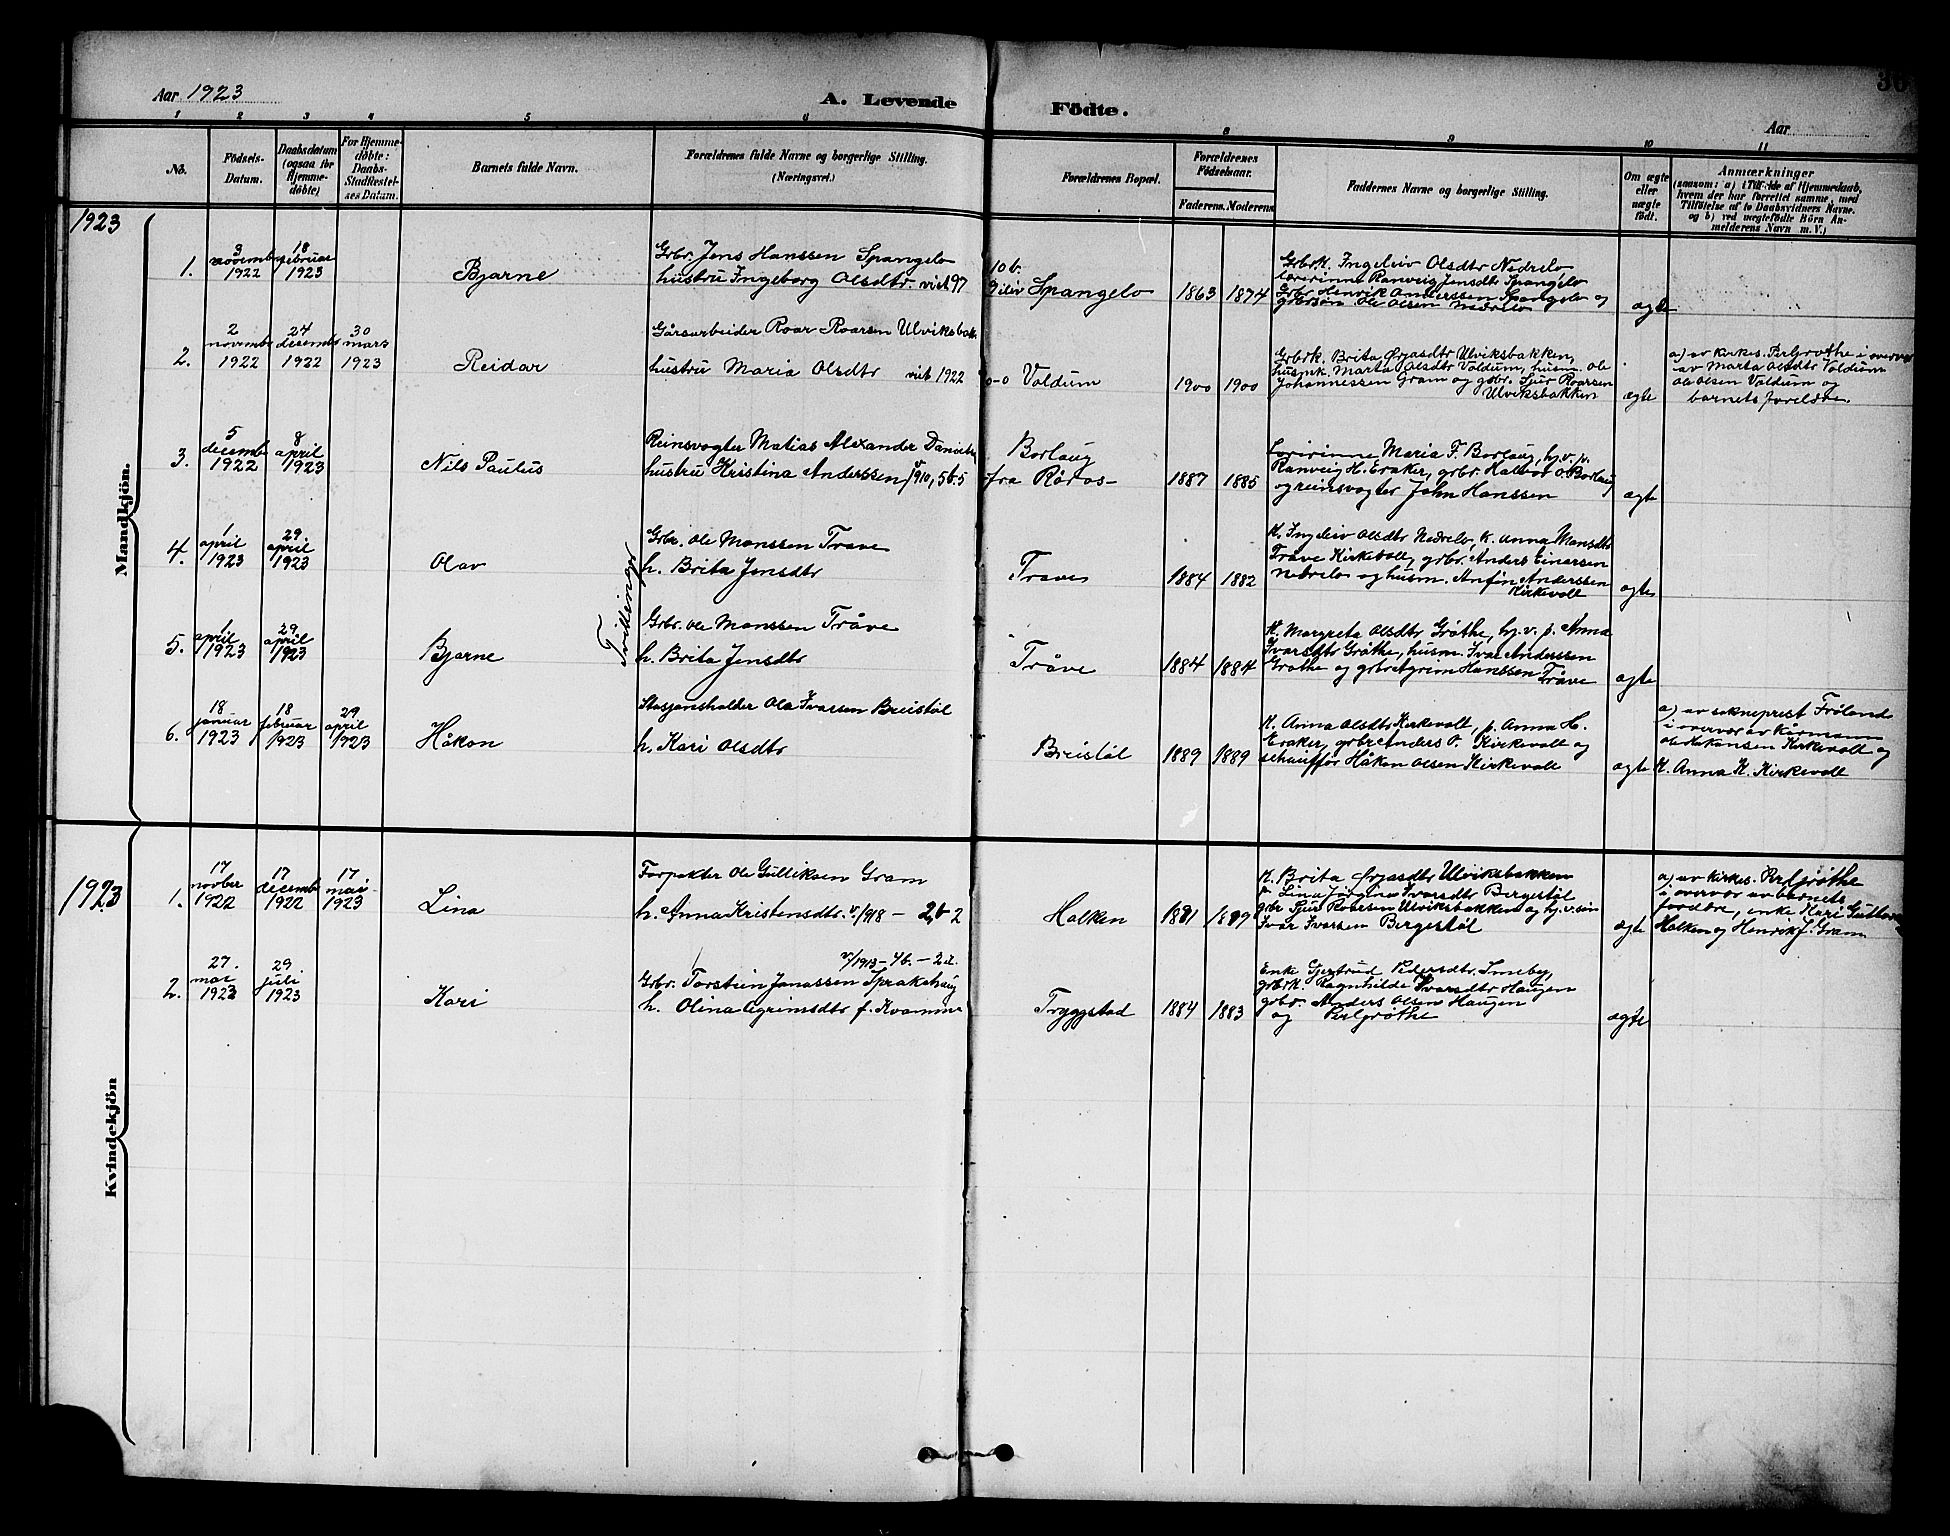 Aar 1923
A. Levende Födte.
Aar
36
1 2 3 4 5 6 8 9 10 11
No.
Födsels-Datum.
Daabsdatum (ogsaa for Hjemme-döbte)
For Hjemme-döbte: Daabs-Stadfæstelses Datum.
Barnets fulde Navn.
Forældrenes fulde Navne og borgerlige Stilling. (Næringsvei.)
Forældrenes Bopæl.
Forældrenes Födselsaar.
Faderens. Moderens.
Faddernes Navne og borgerlige Stilling.
Om ægte eller uægte födt.
Anmærkninger
(saasom: a) i Tilfælde af Hjemmedaab, hvem der har forrettet samme, med Tilföielse af to Daabsvidners Navne, og b) ved uægtefödte Börn Anmelderens Navn m. V.)
Mandkjön.
1923
1.
3 november 1922
18 februar 1923
Bjarne
Grbr. Jens Hanssen Spangelo
hustru Ingeborg Olsdtr. viet 97
10 b.
Spangelo
1863 1874
Grbrk. Ingeleiv Olsdtr Nedrelo
lærerinne Ranveig Jensdtr Spangelo
Grbr Henrik Anderssen Spangelo og
grbrsøn Ole Olsen Nedrelo
ægte
2.
2 november 1922
24 decembr 1922
30 mars 1923
Reidar
Gårsarbeider Roar Roarsen Ulviksbakk
hustru Maria Olsdtr viet 1922
0-0
Voldum
1900 1900
Grbrk. Brita Ørjasdtr Ulviksbakken,
husmk. Marta Olsdtr Voldum, husm. Ole
Johannessen Gram og grbr. Sjur Roarsen
Ulviksbakken
ægte
a) av kirkes. Per Grøthe i overvær
av Marta Olsdtr Voldum
Ole Olsen Voldum og
barnets foreldre.
3.
5 decemb 1922
8 april 1923
Nils Paulus
Reinsvogter Matias Alexander
hustru Kristina Anderssen
Borlaug
fra Røros
1887 1885
Lærerinne Maria F. Borlaug, hj.v.p.
Ranveig H. Eraker, grbr. Halvor O. Borlaug
og reinsvogter John Hanssen
ægte
4.
1 april 1923
29. april 1923
Olav
Tvillinger
Grbr. Ole Monssen Trave
h. Brita Jensdtr
Trave
1884 1882
K. Ingeleiv Olsdtr Nedrelo, k. Anna Monsdtr
Tråve Kirkevoll, grbr. Anders Einarsen
Nedrelo og husm. Anfin Anderssen
Kirkevoll
ægte
5.
1 april 1923
29 april 1923
Bjarne
Grbr. Ole Monssen Tråve
h. Brita Jensdtr
Tråve
1884 1884
K. Margreta Olsdtr Grøthe, hj.v. p. Anna
Ivarsdtr Grøthe, husm. Ivar Anderssen
Grøthe og grbr Agrim Hanssen Tråve
ægte
6.
18 januar 1923
18 februar 1923
29 april 1923
Håkon
Stasjonsholder Ole Ivarsen Breistøl
h. Kari Olsdtr
Breistøl
1889 1889
K. Anna Olsdtr Kirkevoll, p. Anna H.
Eraker, grbr Anders O. Kirkevoll og
schauffør Håkon Olsen Kirkevoll
ægte
a) av sokneprest Frøland
i overvær av kårmann
Ole Hakansen Kirkevoll og
K. Anna K. Kirkevoll
Kvindekjön
1923
1.
17 novber 1922
17 decemb 1922
17 mai 1923
Lina
Forpakter Ole Gulliksen Gram
h. Anna Kristensdtr. v/1918 - 2 b 2
Holken
1881 1889
K. Brita Ørjasdtr Ulviksbakken
p. Lina Jörgine Ivarsdtr Bergestøl
grbr Sjur Roarsen Ulviksbakken og hj.v. søn
Ivar Ivarsen Bergestøl
ægte
a) av kirkes. Per Grøthe
i overvær av barnets
foreldre, enke Kari
Holken og Henrik J. Gram
2.
27. mai 1923
29 juli 1923
Kari
v/1913 - 4b. - 2 l.
Grbr. Torstein Jonassen Sprakehaug
h. Olina Agrimsdtr f. Kvamme
Tryggstad
1884 1883
Enke Gjertrud Pedersdtr. Smeby,
grbrk. Ragnhilde Ivarsdtr Haugen
grbr. Anders Olsen Haugen
og Per Grøthe
ægte